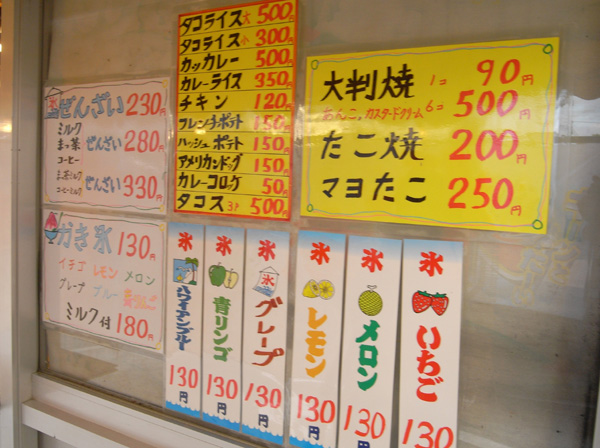 氷ぜんざい 230円
ミルク
まっ茶 ぜんざい 280円
コーヒー
まっ茶ミルク
コーヒーミルク ぜんざい 330円
かき氷 130円
イチゴ レモン メロン
グレープ ブルー
ミルク付 180円
タコライス大 500円
タコライス小 300円
カッカレー 500円
カレーライス 350円
チキン 120円
フレンチポテト 150円
ハッシュポテト 150円
アメリカンドッグ 150円
カレーコロッケ 50円
タコス 3P 500円
大判焼 1コ 90円
あんこ,カスタードクリーム 6コ 500円
たこ焼 200円
マヨたこ 250円
氷 ハワイアンブルー 130円
氷 青リンゴ 130円
氷 グレープ 130円
氷 レモン 130円
氷 メロン 130円
氷 いちご 130円